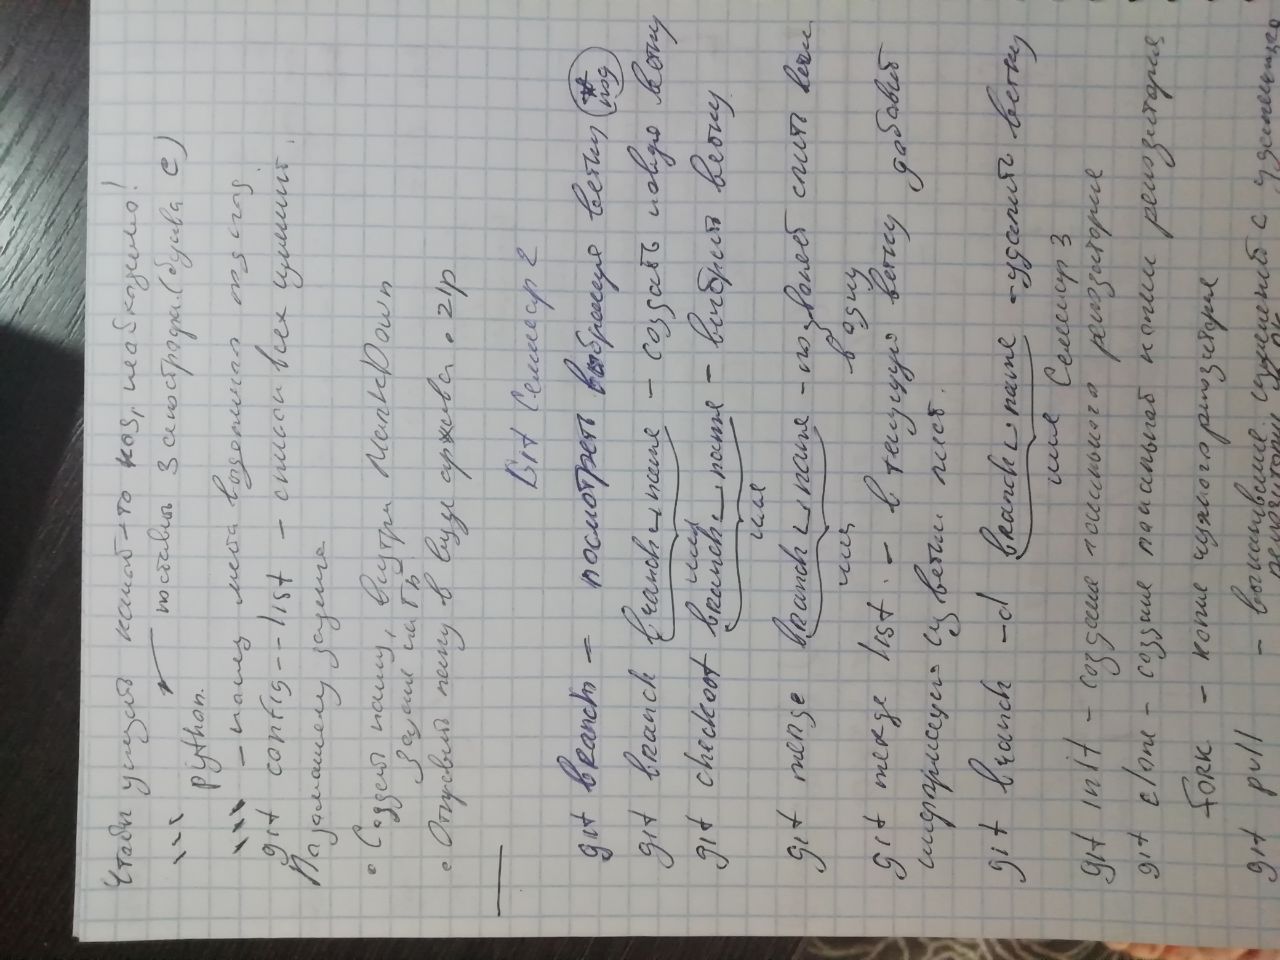 Чтобы указать какой-то код, необходимо!
``` поставить 3 апострофа (буква ё)
python.
``` - конец места водотного под код.
git config --list - список всех
По домашнему задание
• Создать папку внутри MarkDown
задание на ГБ
• Отправить папку в виде архива. zip
Git Семестр 2
git branch = посмотреть выбранную ветку * код
git branch branch_name - создать новую ветку
имя
git checkout branch_name - выбрать ветку
имя
git merge branch_name - позволяет слить ветки
имя в одну
git merge list - в текущую ветку добавит
информацию из ветки лист.
git branch -d branch_name - удалить ветку
имя
Семинар 3
git init - создание локального репозитория
git clone - создание локальной копии репозитория
Fork - копие чужого репозиторие
git pull - вытягивание изменений с удаленного